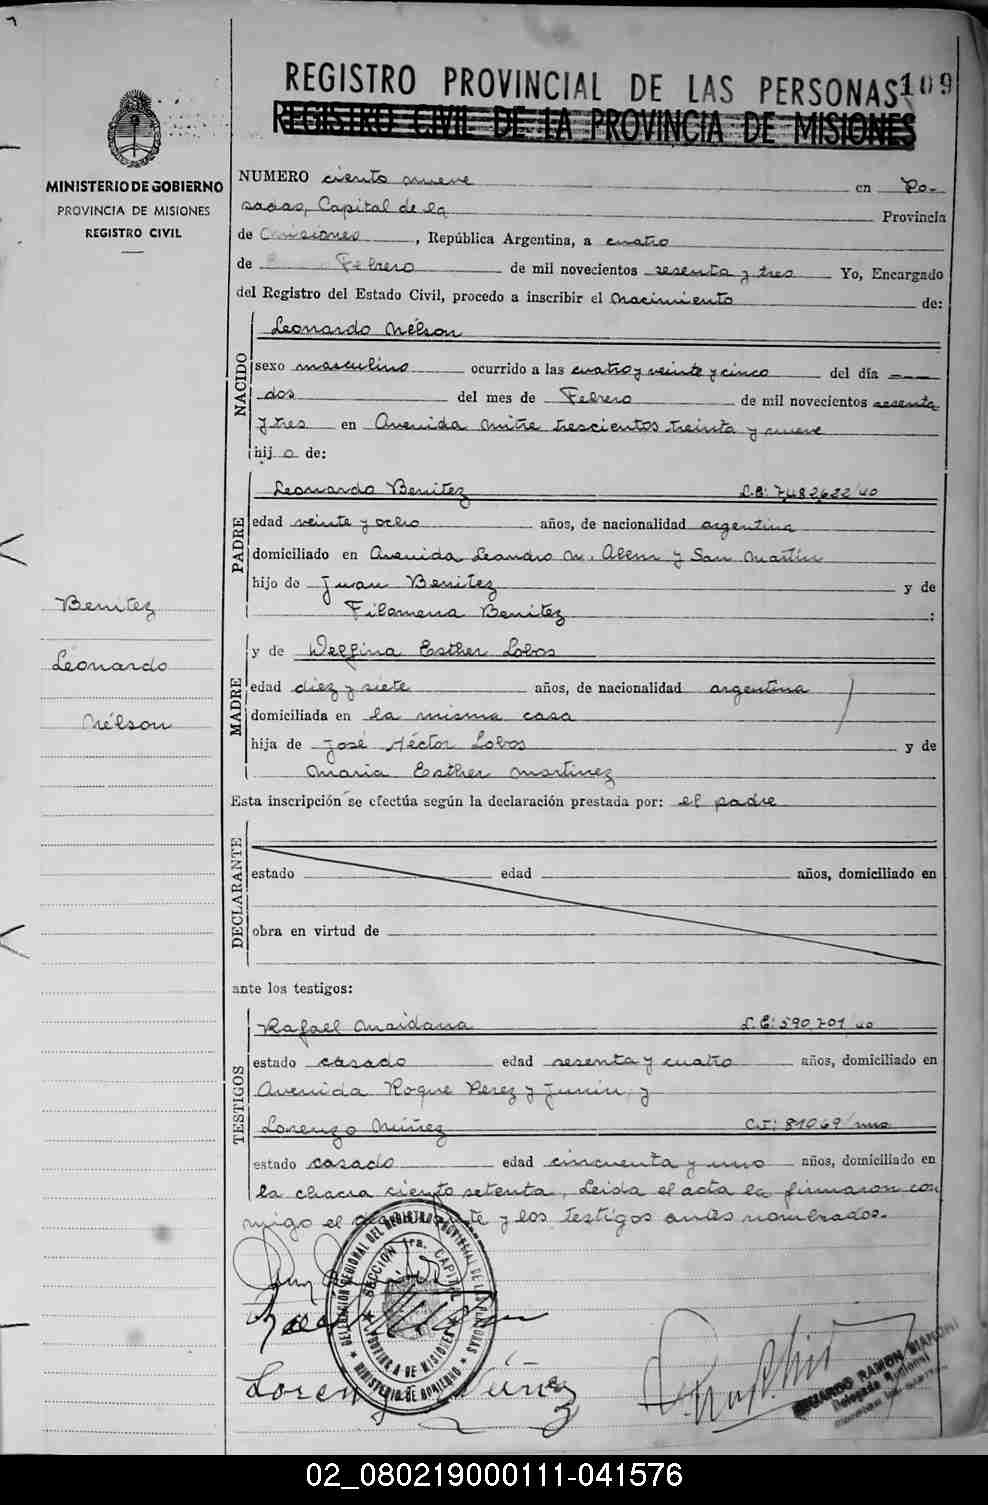 REGISTRO PROVINCIAL DE LAS PERSONAS 109
REGISTRO CIVIL DE LA PROVINCIA DE MISIONES
MINISTERIO DE GOBIERNO
PROVINCIA DE MISIONES
REGISTRO CIVIL
NUMERO ciento nueve en Po-
sadas, Capital de la Provincia
de Misiones, República Argentina, a cuatro
de Febrero de mil novecientos sesenta y tres Yo, Encargado
del Registro del Estado Civil, procedo a inscribir el Nacimiento de:
NACIDO
Leonardo Nélson
sexo masculino ocurrido a las cuatro y veinte y cinco del día
dos del mes de Febrero de mil novecientos sesenta
y tres en Avenida Mitre trescientos treinta y nueve
hijo de:
PADRE
Leonardo Benitez L.E: 7.482.622/no
edad veinte y ocho años, de nacionalidad argentina
domiciliado en Avenida Leandro N. Alem y San Martín
hijo de Juan Benitez y de
Filomena Benitez :
MADRE
y de Delfina Esther Lobos
edad diez y siete años, de nacionalidad argentina
domiciliada en la misma casa
hija de José Héctor Lobos y de
Maria Esther Martinez
Benitez
Leonardo
Nélson
Esta inscripción se efectúa según la declaración prestada por: el padre
DECLARANTE
estado edad años, domiciliado en
obra en virtud de
ante los testigos:
TESTIGOS
Rafael Maidana L.E: 590.701/no
estado casado edad sesenta y cuatro años, domiciliado en
Avenida Roque Perez y Junin, y
Lorenzo Núñez C.I: 81069/mnes
estado casado edad cincuenta y uno años, domiciliado en
la chacra ciento setenta, Leida el acta la firmaron con
migo el y los testigos antes nombrados.
DELEGACION REGIONAL DEL REGISTRO PROVINCIAL DE LAS PERSONAS
SECCION 1ra. CAPITAL
PROVINCIA DE MISIONES
MINISTERIO DE GOBIERNO
Lorenzo Núñez
EDUARDO RAMON MANCHI
Delegado Regional
02_080219000111-041576